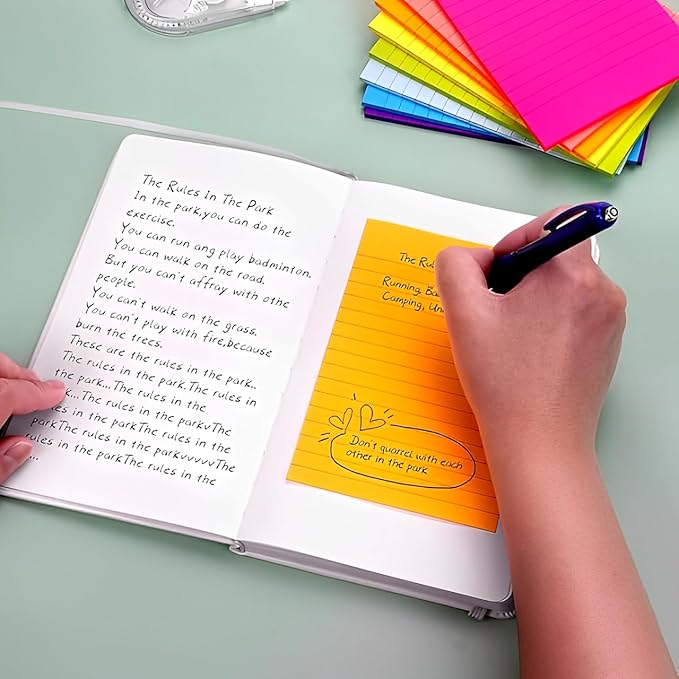 The Rules In The Park
In the park,you can do the
exercise.
You can run ang play badminton.
You can walk on the road.
But you can't affray with othe
people.
You can't walk on the grass.
You can't play with fire,because
burn the trees.
These are the rules in the park..
The rules in the park.The rules in
the park...The rules in the
...The rules in the parkvThe
rules in the parkThe rules in the
parkThe rules in the parkvvvvvThe
rules in the parkThe rules in the
...
The
Running,
Camping,
Don't quarrel with each
other in the park